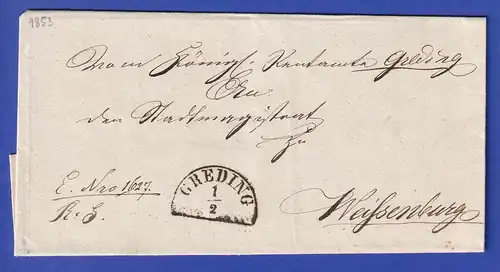 1853
Vom Königl. Rentamte Greding
An
den Stadtmagistrat
zu
E. Nro 1627.
R. S.
GREDING
1/2
Weissenburg